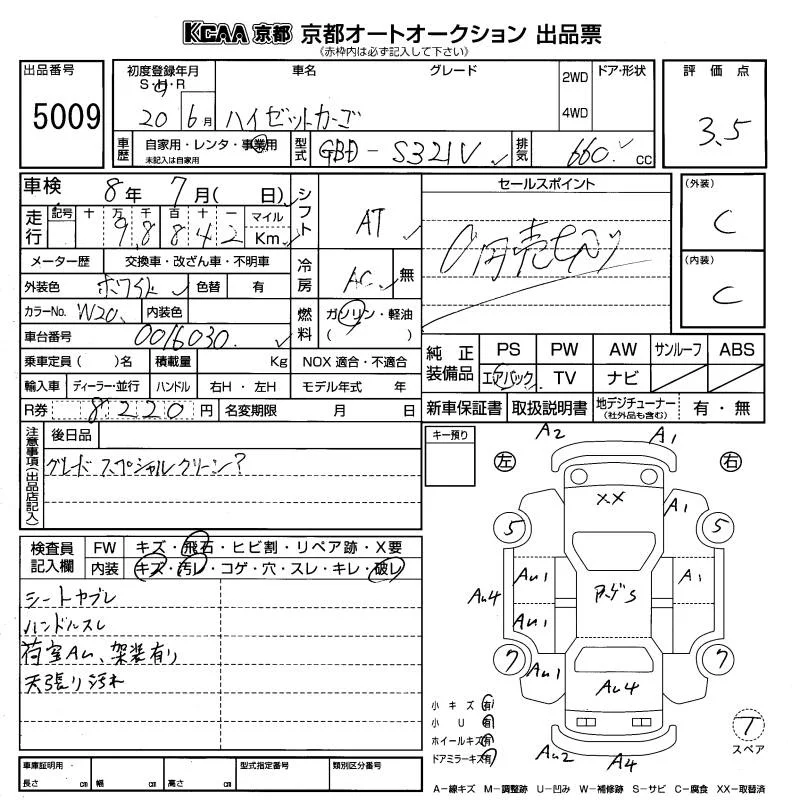 KCAA 京都 京都オートオークション 出品票
(赤枠内は必ず記入して下さい)
出品番号 初度登録年月 車名 グレード 2WD ドア・形状 評価点
S・H・R
5009 20 6月 ハイゼットカーゴ 4WD 3.5
車歴 自家用・レンタ・事業用 型式 GBD-S321V 排気 660 cc
未記入は自家用
車検 8年 7月( 日) シフト AT セールスポイント (外装)
走行 記号 十 万 千 百 十 一 マイル C
9 8 8 4 2 Km 0円売切り
メーター歴 交換車・改ざん車・不明車 冷房 AC 無 (内装)
外装色 ホワイト 色替 有 C
カラーNo. W20 内装色 燃料 ガソリン・軽油
車台番号 0016030 ( )
乗車定員 ( )名 積載量 Kg NOX 適合・不適合 純正装備品 PS PW AW サンルーフ ABS
輸入車 ディーラー・並行 ハンドル 右H・左H モデル年式 年 エアバック TV ナビ
R券 8220円 名変期限 月 日 新車保証書 取扱説明書 地デジチューナー 有・無
(社外品も含む)
注意事項(出品店記入) 後日品 キー預り A2 A1
グレード スペシャルクリーン? 左 右
XX A1
5 5
検査員記入欄 FW キズ・飛石・ヒビ割・リペア跡・X要
内装 キズ・汚レ・コゲ・穴・スレ・キレ・破レ
AU1 A1
シートヤブレ AU4
ハンドルスレ AU1
荷室AU、架装有り 7 7
天張り汚れ AU1 AU4
小キズ 有
小U 有
ホイールキズ 有 T
ドアミラーキズ 有 AU2 A4 スペア
車庫証明用 型式指定番号 類別区分番号
長さ cm 幅 cm 高さ cm
A-線キズ M-調整跡 U-凹み W-補修跡 S-サビ C-腐食 XX-取替済